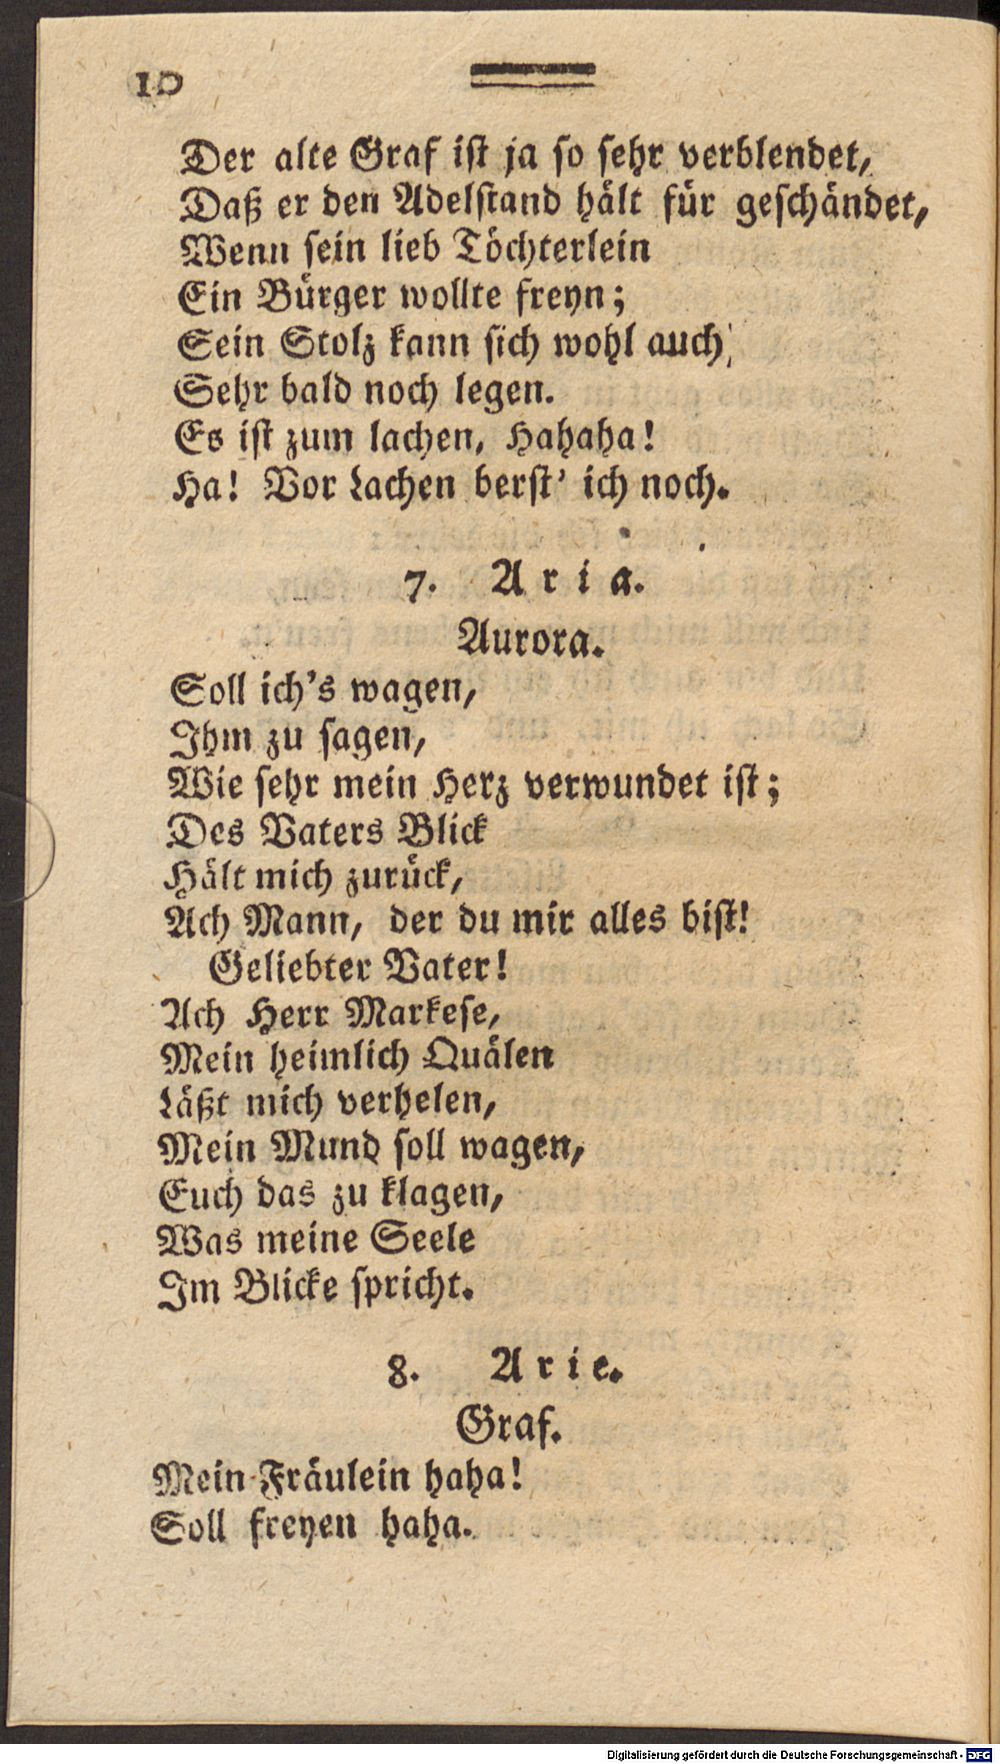 10
Der alte Graf ist ja so sehr verblendet,
Daß er den Adelstand hält für geschändet,
Wenn sein lieb Töchterlein
Ein Bürger wollte freyn;
Sein Stolz kann sich wohl auch,
Sehr bald noch legen.
Es ist zum lachen, Hahaha!
Ha! Vor Lachen berst' ich noch.
7. Aria.
Aurora.
Soll ich's wagen,
Ihm zu sagen,
Wie sehr mein Herz verwundet ist;
Des Vaters Blick
Hält mich zurück,
Ach Mann, der du mir alles bist!
Geliebter Vater!
Ach Herr Markese,
Mein heimlich Quälen
Läßt mich verhelen,
Mein Mund soll wagen,
Euch das zu klagen,
Was meine Seele
Im Blicke spricht.
8. Arie.
Graf.
Mein Fräulein haha!
Soll freyen haha.
Digitalisierung gefördert durch die Deutsche Forschungsgemeinschaft - DFG